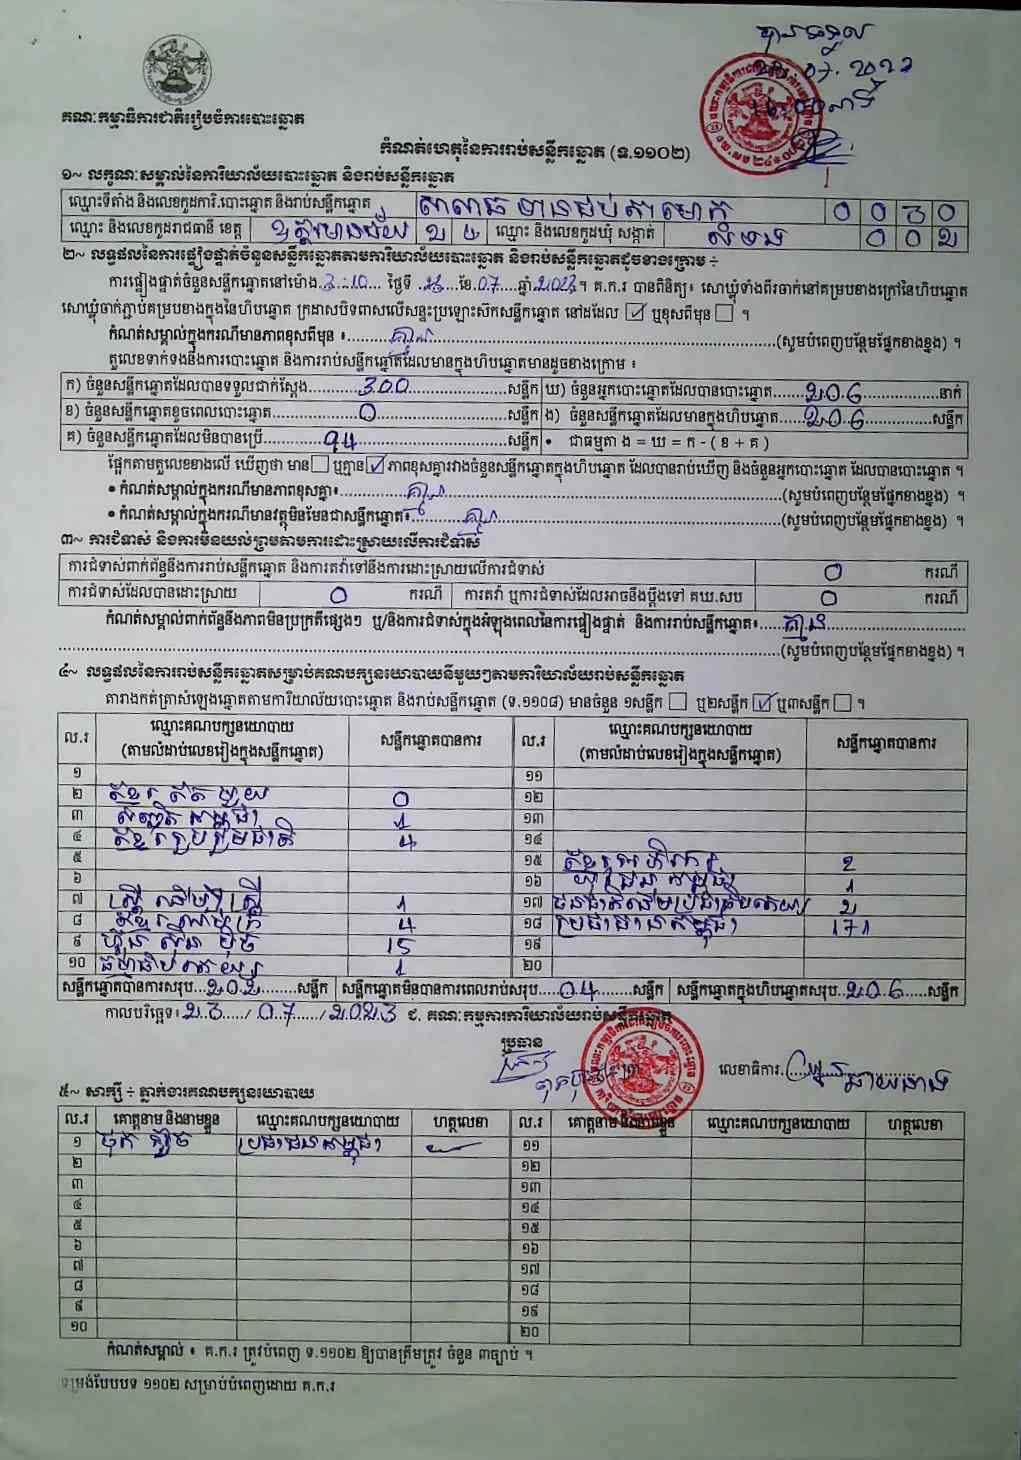 បានទទួល
គណៈកម្មាធិការជាតិរៀបចំការបោះឆ្នោត
កំណត់ហេតុនៃការរាប់សន្លឹកឆ្នោត (ទ.១១០២)
១~ លក្ខណៈសម្គាល់នៃការិយាល័យបោះឆ្នោត និងរាប់សន្លឹកឆ្នោត
ឈ្មោះទីតាំង និងលេខកូដការិ.បោះឆ្នោត និងរាប់សន្លឹកឆ្នោត
ឈ្មោះ និងលេខកូដរាជធានី ខេត្ត ឧត្តរមានជ័យ ឈ្មោះ និងលេខកូដឃុំ សង្កាត់ 0 0
២~ លទ្ធផលនៃការផ្ទៀងផ្ទាត់ចំនួនសន្លឹកឆ្នោតតាមការិយាល័យបោះឆ្នោត និងរាប់សន្លឹកឆ្នោតដូចខាងក្រោម ÷
ការផ្ទៀងផ្ទាត់ចំនួនសន្លឹកឆ្នោតនៅម៉ោង 3:10 ថ្ងៃទី ខែ 07 ឆ្នាំ 2023 ។ គ.ក.រ បានពិនិត្យ៖ សោឃ្លុំទាំងពីរចាក់នៅគម្របខាងក្រៅនៃហិបឆ្នោត
សោឃ្លុំចាក់ភ្ជាប់គម្របខាងក្នុងនៃហិបឆ្នោត ក្រដាសបិទពាសលើសន្ទះប្រឡោះស៊កសន្លឹកឆ្នោត នៅដដែល ☑ ឬខុសពីមុន ☐ ។
កំណត់សម្គាល់ក្នុងករណីមានភាពខុសពីមុន ៖ គ្មាន (សូមបំពេញបន្ថែមផ្នែកខាងខ្នង) ។
តួលេខទាក់ទងនឹងការបោះឆ្នោត និងការរាប់សន្លឹកឆ្នោតដែលមានក្នុងហិបឆ្នោតមានដូចខាងក្រោម ៖
ក) ចំនួនសន្លឹកឆ្នោតដែលបានទទួលជាក់ស្តែង 300 សន្លឹក ឃ) ចំនួនអ្នកបោះឆ្នោតដែលបានបោះឆ្នោត 206 នាក់
ខ) ចំនួនសន្លឹកឆ្នោតខូចពេលបោះឆ្នោត 0 សន្លឹក ង) ចំនួនសន្លឹកឆ្នោតដែលមានក្នុងហិបឆ្នោត 206 សន្លឹក
គ) ចំនួនសន្លឹកឆ្នោតដែលមិនបានប្រើ 94 សន្លឹក • ជាធម្មតា ង = ឃ = ក - ( ខ + គ )
ផ្អែកតាមតួលេខខាងលើ ឃើញថា មាន ☐ ឬគ្មាន ☑ ភាពខុសគ្នារវាងចំនួនសន្លឹកឆ្នោតក្នុងហិបឆ្នោត ដែលបានរាប់ឃើញ និងចំនួនអ្នកបោះឆ្នោត ដែលបានបោះឆ្នោត ។
• កំណត់សម្គាល់ក្នុងករណីមានភាពខុសគ្នា៖ គ្មាន (សូមបំពេញបន្ថែមផ្នែកខាងខ្នង) ។
• កំណត់សម្គាល់ក្នុងករណីមានវត្ថុមិនមែនជាសន្លឹកឆ្នោត៖ គ្មាន (សូមបំពេញបន្ថែមផ្នែកខាងខ្នង) ។
៣~ ការជំទាស់ និងការមិនយល់ព្រមតាមការដោះស្រាយលើការជំទាស់
ការជំទាស់ពាក់ព័ន្ធនឹងការរាប់សន្លឹកឆ្នោត និងការតវ៉ាទៅនឹងការដោះស្រាយលើការជំទាស់ 0 ករណី
ការជំទាស់ដែលបានដោះស្រាយ 0 ករណី ការតវ៉ា ឬការជំទាស់ដែលអាចនឹងប្តឹងទៅ គឃ.សប 0 ករណី
កំណត់សម្គាល់ពាក់ព័ន្ធនឹងភាពមិនប្រក្រតីផ្សេងៗ ឬ/និងការជំទាស់ក្នុងអំឡុងពេលនៃការផ្ទៀងផ្ទាត់ និងការរាប់សន្លឹកឆ្នោត៖ គ្មាន
(សូមបំពេញបន្ថែមផ្នែកខាងខ្នង) ។
៤~ លទ្ធផលនៃការរាប់សន្លឹកឆ្នោតសម្រាប់គណបក្សនយោបាយនីមួយៗតាមការិយាល័យរាប់សន្លឹកឆ្នោត
តារាងកត់ត្រាសំឡេងឆ្នោតតាមការិយាល័យបោះឆ្នោត និងរាប់សន្លឹកឆ្នោត (ទ.១១០៨) មានចំនួន ១សន្លឹក ☐ ឬ២សន្លឹក ☑ ឬ៣សន្លឹក ☐ ។
ល.រ ឈ្មោះគណបក្សនយោបាយ (តាមលំដាប់លេខរៀងក្នុងសន្លឹកឆ្នោត) សន្លឹកឆ្នោតបានការ ល.រ ឈ្មោះគណបក្សនយោបាយ (តាមលំដាប់លេខរៀងក្នុងសន្លឹកឆ្នោត) សន្លឹកឆ្នោតបានការ
១ ១១
២ ខ្មែរតែមួយ 0 ១២
៣ 1 ១៣
៤ ខ្មែររួបរួមជាតិ 4 ១៤
៥ ១៥ 2
៦ ១៦ 1
៧ ស្រ្តីដើម្បីស្រ្តី 1 ១៧ 2
៨ 4 ១៨ ប្រជាជនកម្ពុជា 171
៩ ហ្វ៊ុនស៊ិនប៉ិច 15 ១៩
១០ ធម្មាធិបតេយ្យ 1 ២០
សន្លឹកឆ្នោតបានការសរុប 202 សន្លឹក សន្លឹកឆ្នោតមិនបានការពេលរាប់សរុប 04 សន្លឹក សន្លឹកឆ្នោតក្នុងហិបឆ្នោតសរុប 206 សន្លឹក
កាលបរិច្ឆេទ៖ 23 / 07 / 2023 ជ. គណៈកម្មការការិយាល័យរាប់សន្លឹកឆ្នោត
ប្រធាន
លេខាធិការ
៥~ សាក្សី ÷ ភ្នាក់ងារគណបក្សនយោបាយ
ល.រ គោត្តនាម និងនាមខ្លួន ឈ្មោះគណបក្សនយោបាយ ហត្ថលេខា ល.រ គោត្តនាម និងនាមខ្លួន ឈ្មោះគណបក្សនយោបាយ ហត្ថលេខា
១ ប្រជាជនកម្ពុជា ១១
២ ១២
៣ ១៣
៤ ១៤
៥ ១៥
៦ ១៦
៧ ១៧
៨ ១៨
៩ ១៩
១០ ២០
កំណត់សម្គាល់ ៖ គ.ក.រ ត្រូវបំពេញ ទ.១១០២ ឱ្យបានត្រឹមត្រូវ ចំនួន ៣ច្បាប់ ។
ទម្រង់បែបបទ ១១០២ សម្រាប់បំពេញដោយ គ.ក.រ